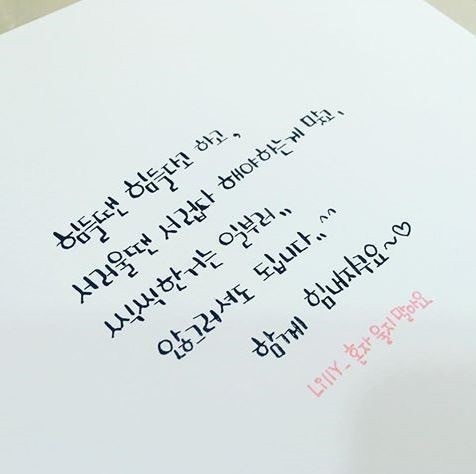 힘들땐 힘들다고 하고,
서러울땐 서럽다 해야하는게 맞고,
씩씩한거는 일부러..
않그러셔도 됩니다..^^
함께 힘내자구요~♡
Lilly_혼자 울지 말아요